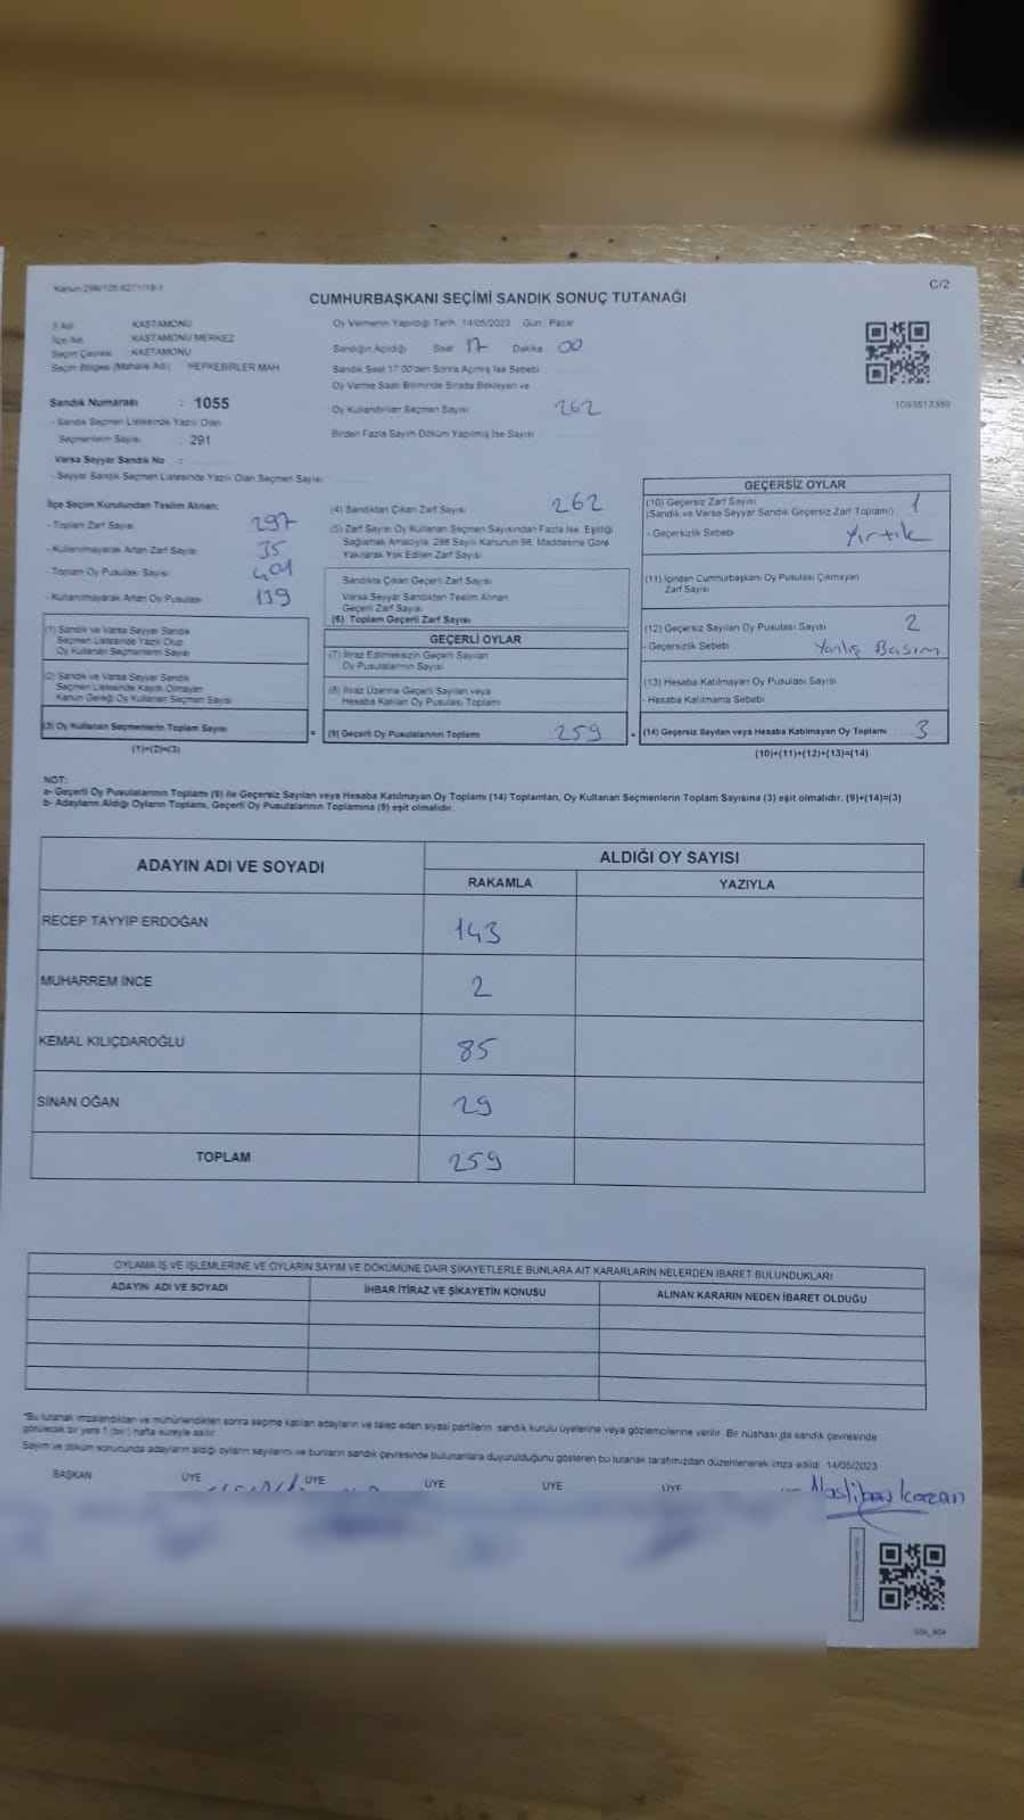 C/2
CUMHURBAŞKANI SEÇİMİ SANDIK SONUÇ TUTANAĞI
İl Adı KASTAMONU
İlçe Adı KASTAMONU MERKEZ
Seçim Çevresi KASTAMONU
Seçim Bölgesi (Mahalle Adı) HEPKEBİRLER MAH
Sandık Numarası : 1055
- Sandık Seçmen Listesinde Yazılı Olan
Seçmenlerin Sayısı : 291
Varsa Seyyar Sandık No :
- Seyyar Sandık Seçmen Listesinde Yazılı Olan Seçmen Sayısı
Oy Vermenin Yapıldığı Tarih: 14/05/2023 Gün: Pazar
Sandığın Açıldığı Saat 17 Dakika 00
Sandık Saat 17:00'den Sonra Açılmış İse Sebebi
Oy Verme Saati Bitiminde Sırada Bekleyen ve
Oy Kullandırılan Seçmen Sayısı 262
Birden Fazla Sayım Döküm Yapılmış İse Sayısı
İlçe Seçim Kurulundan Teslim Alınan;
- Toplam Zarf Sayısı 297
- Kullanılmayarak Artan Zarf Sayısı 35
- Toplam Oy Pusulası Sayısı 401
- Kullanılmayarak Artan Oy Pusulası 139
(1) Sandık ve Varsa Seyyar Sandık
Seçmen Listesinde Yazılı Olup
Oy Kullanan Seçmenlerin Sayısı
(2) Sandık ve Varsa Seyyar Sandık
Seçmen Listesinde Kayıtlı Olmayan
Kanun Gereği Oy Kullanan Seçmen Sayısı
(3) Oy Kullanan Seçmenlerin Toplam Sayısı
(1)+(2)=(3)
(4) Sandıktan Çıkan Zarf Sayısı 262
(5) Zarf Sayısı Oy Kullanan Seçmen Sayısından Fazla İse, Eşitliği
Sağlamak Amacıyla, 298 Sayılı Kanunun 98. Maddesine Göre
Yakılarak Yok Edilen Zarf Sayısı
Sandıkta Çıkan Geçerli Zarf Sayısı
Varsa Seyyar Sandıktan Teslim Alınan
Geçerli Zarf Sayısı
(6) Toplam Geçerli Zarf Sayısı
GEÇERLİ OYLAR
(7) İtiraz Edilmeksizin Geçerli Sayılan
Oy Pusulalarının Sayısı
(8) İtiraz Üzerine Geçerli Sayılan veya
Hesaba Katılan Oy Pusulası Toplamı
= (9) Geçerli Oy Pusulalarının Toplamı 259
GEÇERSİZ OYLAR
(10) Geçersiz Zarf Sayısı 1
(Sandık ve Varsa Seyyar Sandık Geçersiz Zarf Toplamı)
- Geçersizlik Sebebi Yırtık
(11) İçinden Cumhurbaşkanı Oy Pusulası Çıkmayan
Zarf Sayısı
(12) Geçersiz Sayılan Oy Pusulası Sayısı 2
- Geçersizlik Sebebi Yanlış Basım
(13) Hesaba Katılmayan Oy Pusulası Sayısı
- Hesaba Katılmama Sebebi
+ (14) Geçersiz Sayılan veya Hesaba Katılmayan Oy Toplamı 3
(10)+(11)+(12)+(13)=(14)
NOT:
a- Geçerli Oy Pusulalarının Toplamı (9) ile Geçersiz Sayılan veya Hesaba Katılmayan Oy Toplamı (14) Toplamları, Oy Kullanan Seçmenlerin Toplam Sayısına (3) eşit olmalıdır. (9)+(14)=(3)
b- Adayların Aldığı Oyların Toplamı, Geçerli Oy Pusulalarının Toplamına (9) eşit olmalıdır.
ADAYIN ADI VE SOYADI ALDIĞI OY SAYISI
RAKAMLA YAZIYLA
RECEP TAYYİP ERDOĞAN 143
MUHARREM İNCE 2
KEMAL KILIÇDAROĞLU 85
SİNAN OĞAN 29
TOPLAM 259
OYLAMA İŞ VE İŞLEMLERİNE VE OYLARIN SAYIM VE DÖKÜMÜNE DAİR ŞİKAYETLERLE BUNLARA AİT KARARLARIN NELERDEN İBARET BULUNDUKLARI
ADAYIN ADI VE SOYADI İHBAR İTİRAZ VE ŞİKAYETİN KONUSU ALINAN KARARIN NEDEN İBARET OLDUĞU
*Bu tutanak imzalandıktan ve mühürlendikten sonra seçime katılan adayların ve talep eden siyasi partilerin sandık kurulu üyelerine veya gözlemcilerine verilir. Bir nüshası da sandık çevresinde
görülecek bir yere 1 (bir) hafta süreyle asılır.
Sayım ve döküm sonucunda adayların aldığı oyların sayılarını ve bunların sandık çevresinde bulunanlara duyurulduğunu gösteren bu tutanak tarafımızdan düzenlenerek imza edildi. 14/05/2023
BAŞKAN ÜYE ÜYE ÜYE ÜYE ÜYE